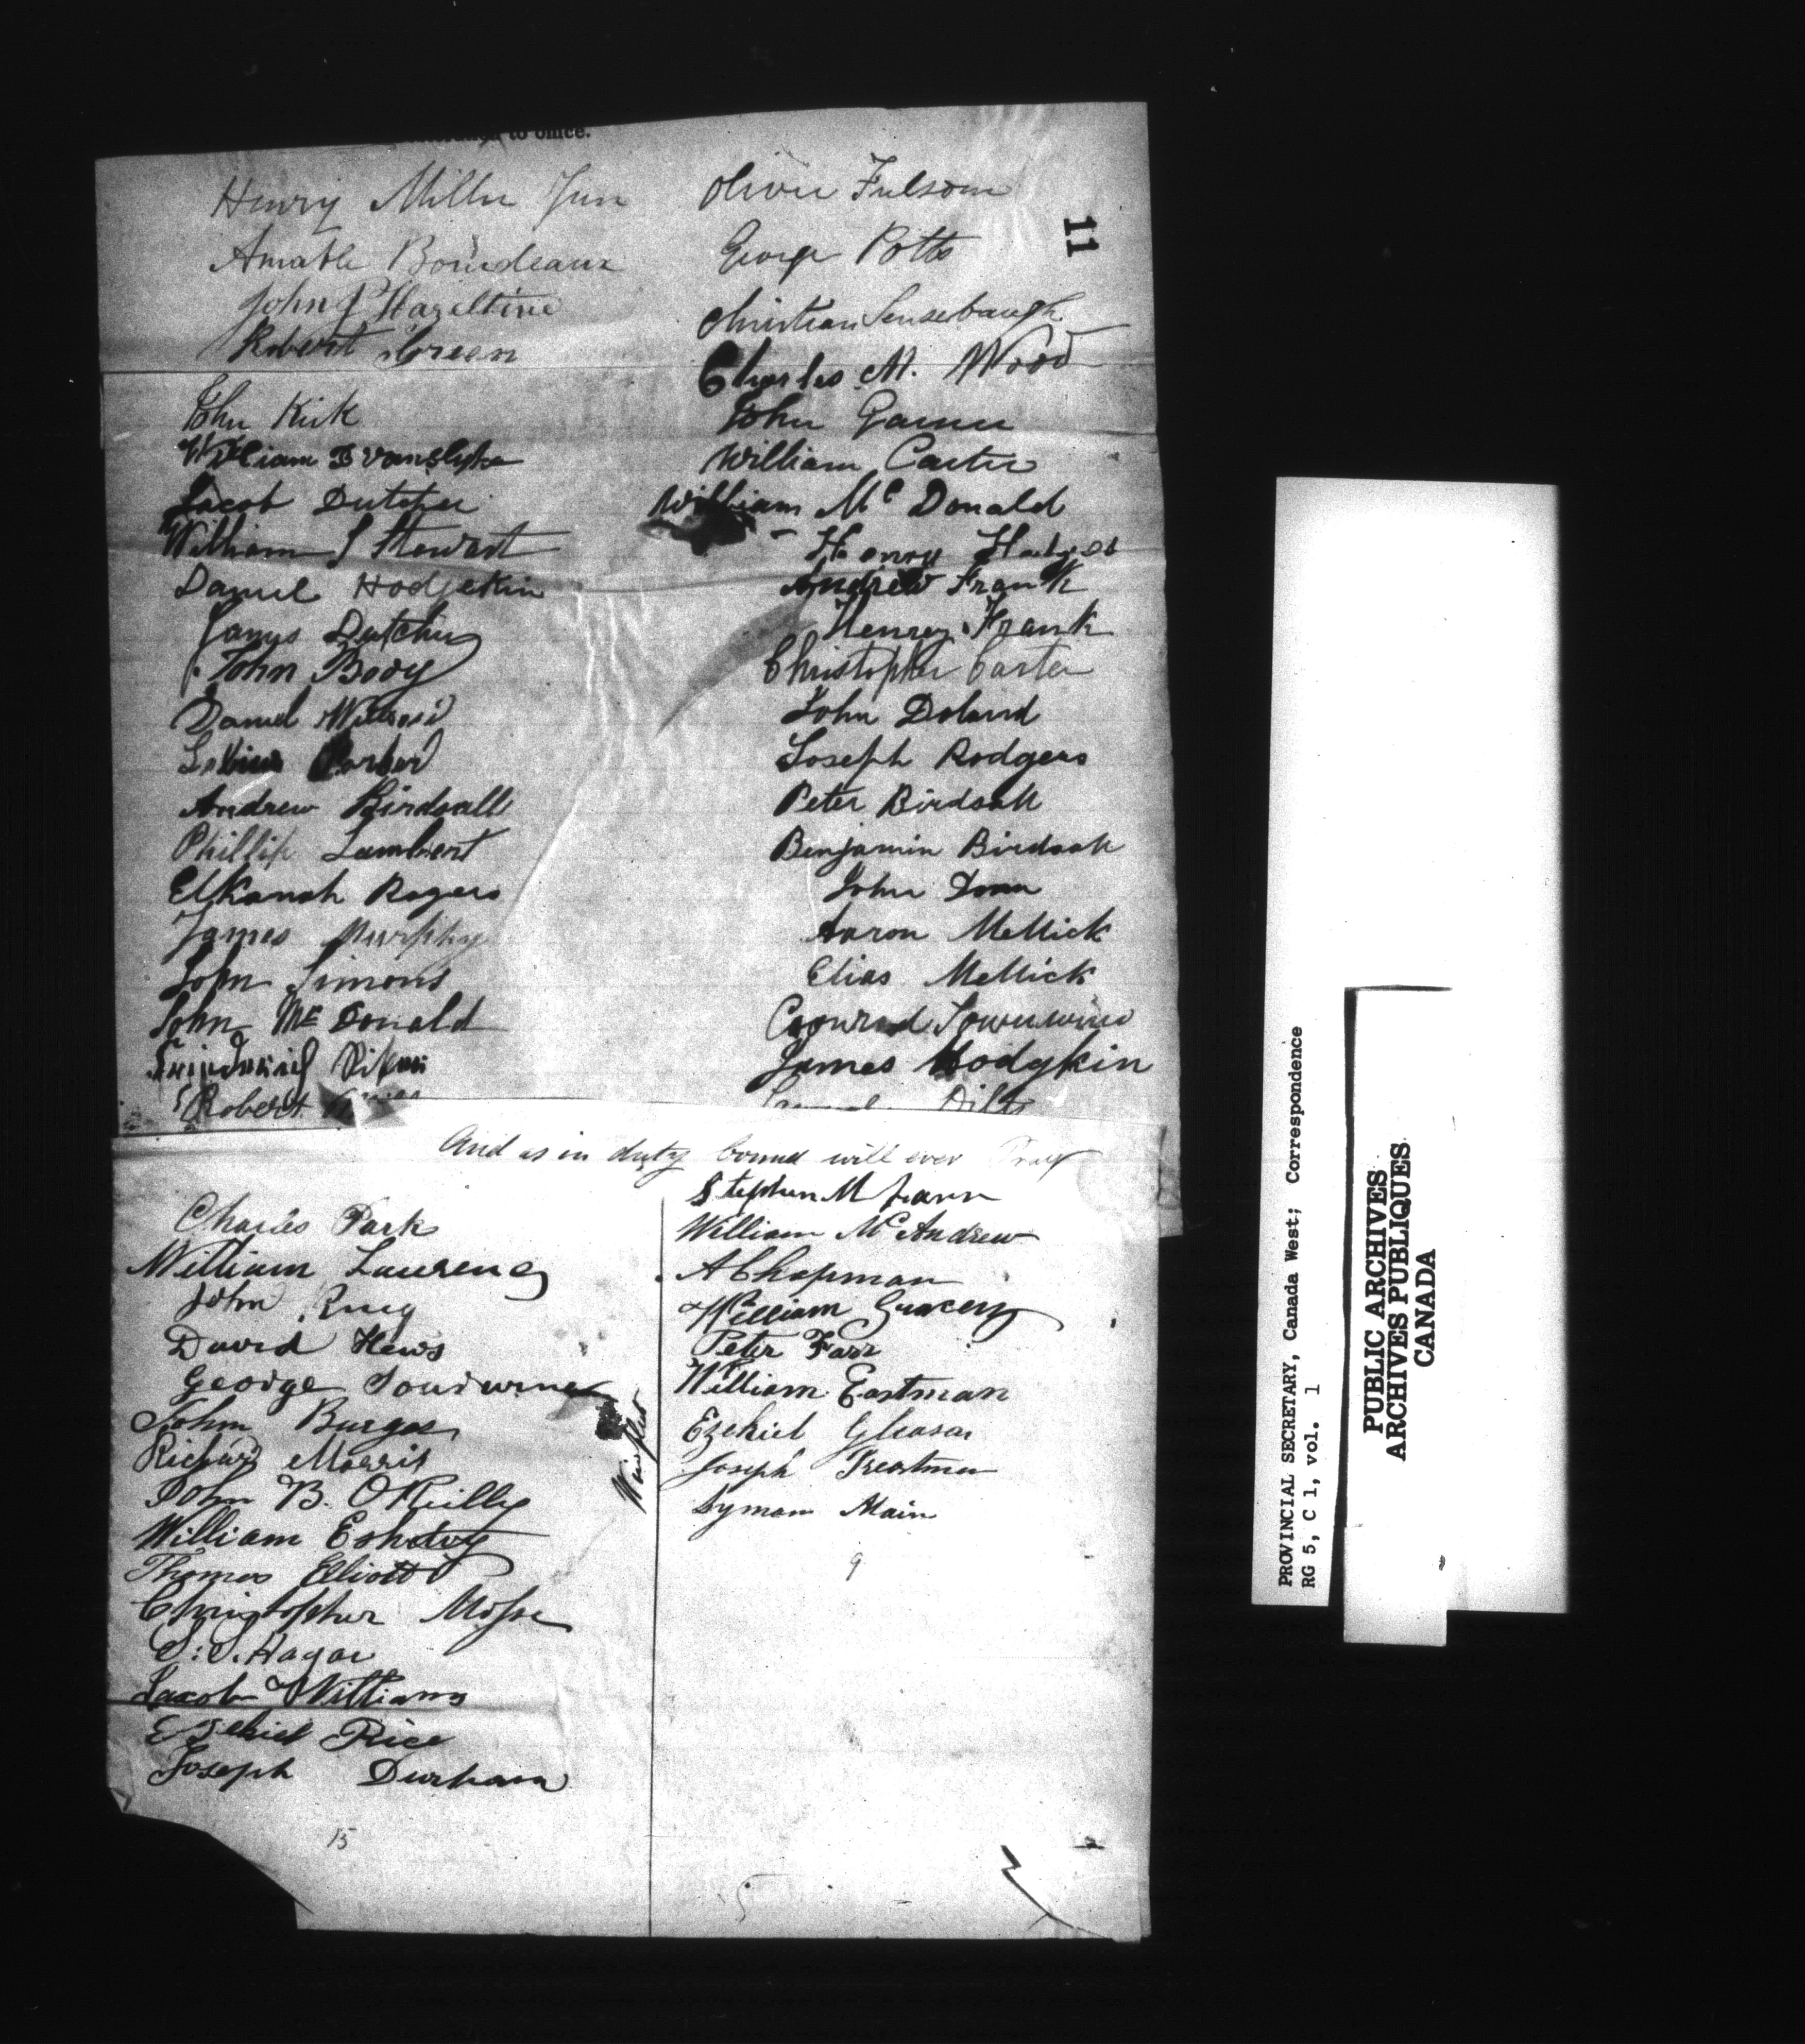 to office.
11
Henry Miller Jun
Amable Bourdeaux
John P Hazeltine
Robert Green
John Kirk
William B Vanslyke
Jacob Dutcher
William J Stewart
Daniel Hodgekin
James Dutcher
John Body
Daniel
Andrew Birdsall
Phillip Lambert
Elkanah Rogers
James Murphy
John Simons
John Mc Donald
Robert
Oliver Fulsom
George Potts
Christian Sensebaugh
Charles M. Wood
John
William Carter
William Mc Donald
Henry
Andrew Frank
Henry Frank
Christopher Carter
John Doland
Joseph Rodgers
Peter Birdsall
Benjamin Birdsall
John
Aaron Mellick
Elias Mellick
Conrad
James Hodgkin
Dilts
And as in duty bound will ever Pray
Charles Park
William Laurence
John
David Hews
George
John Burges
Richard Morris
John B. OReilly
William
Thomas Elliott
Christopher Mosse
S. S. Hagar
Jacob Williams
Ezekiel Rice
Joseph Durham
15
Stephen M
William Mc Andrew
A Chapman
William
Peter Farr
William Eastman
Ezekiel Gleason
Joseph
Lyman Main
9
PROVINCIAL SECRETARY, Canada West; Correspondence
RG 5, C 1, vol. 1
PUBLIC ARCHIVES
ARCHIVES PUBLIQUES
CANADA